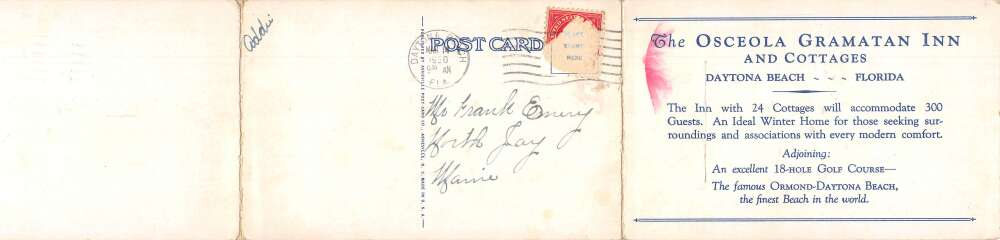 Addie
POST CARD
PLACE
STAMP
HERE
DAYTONA BEACH
1930
AM
FLA.
Mr Frank Emery
North Jay
Maine
The OSCEOLA GRAMATAN INN
AND COTTAGES
DAYTONA BEACH ~ ~ ~ FLORIDA
The Inn with 24 Cottages will accommodate 300
Guests. An Ideal Winter Home for those seeking sur-
roundings and associations with every modern comfort.
Adjoining:
An excellent 18-HOLE GOLF COURSE—
The famous ORMOND-DAYTONA BEACH,
the finest Beach in the world.